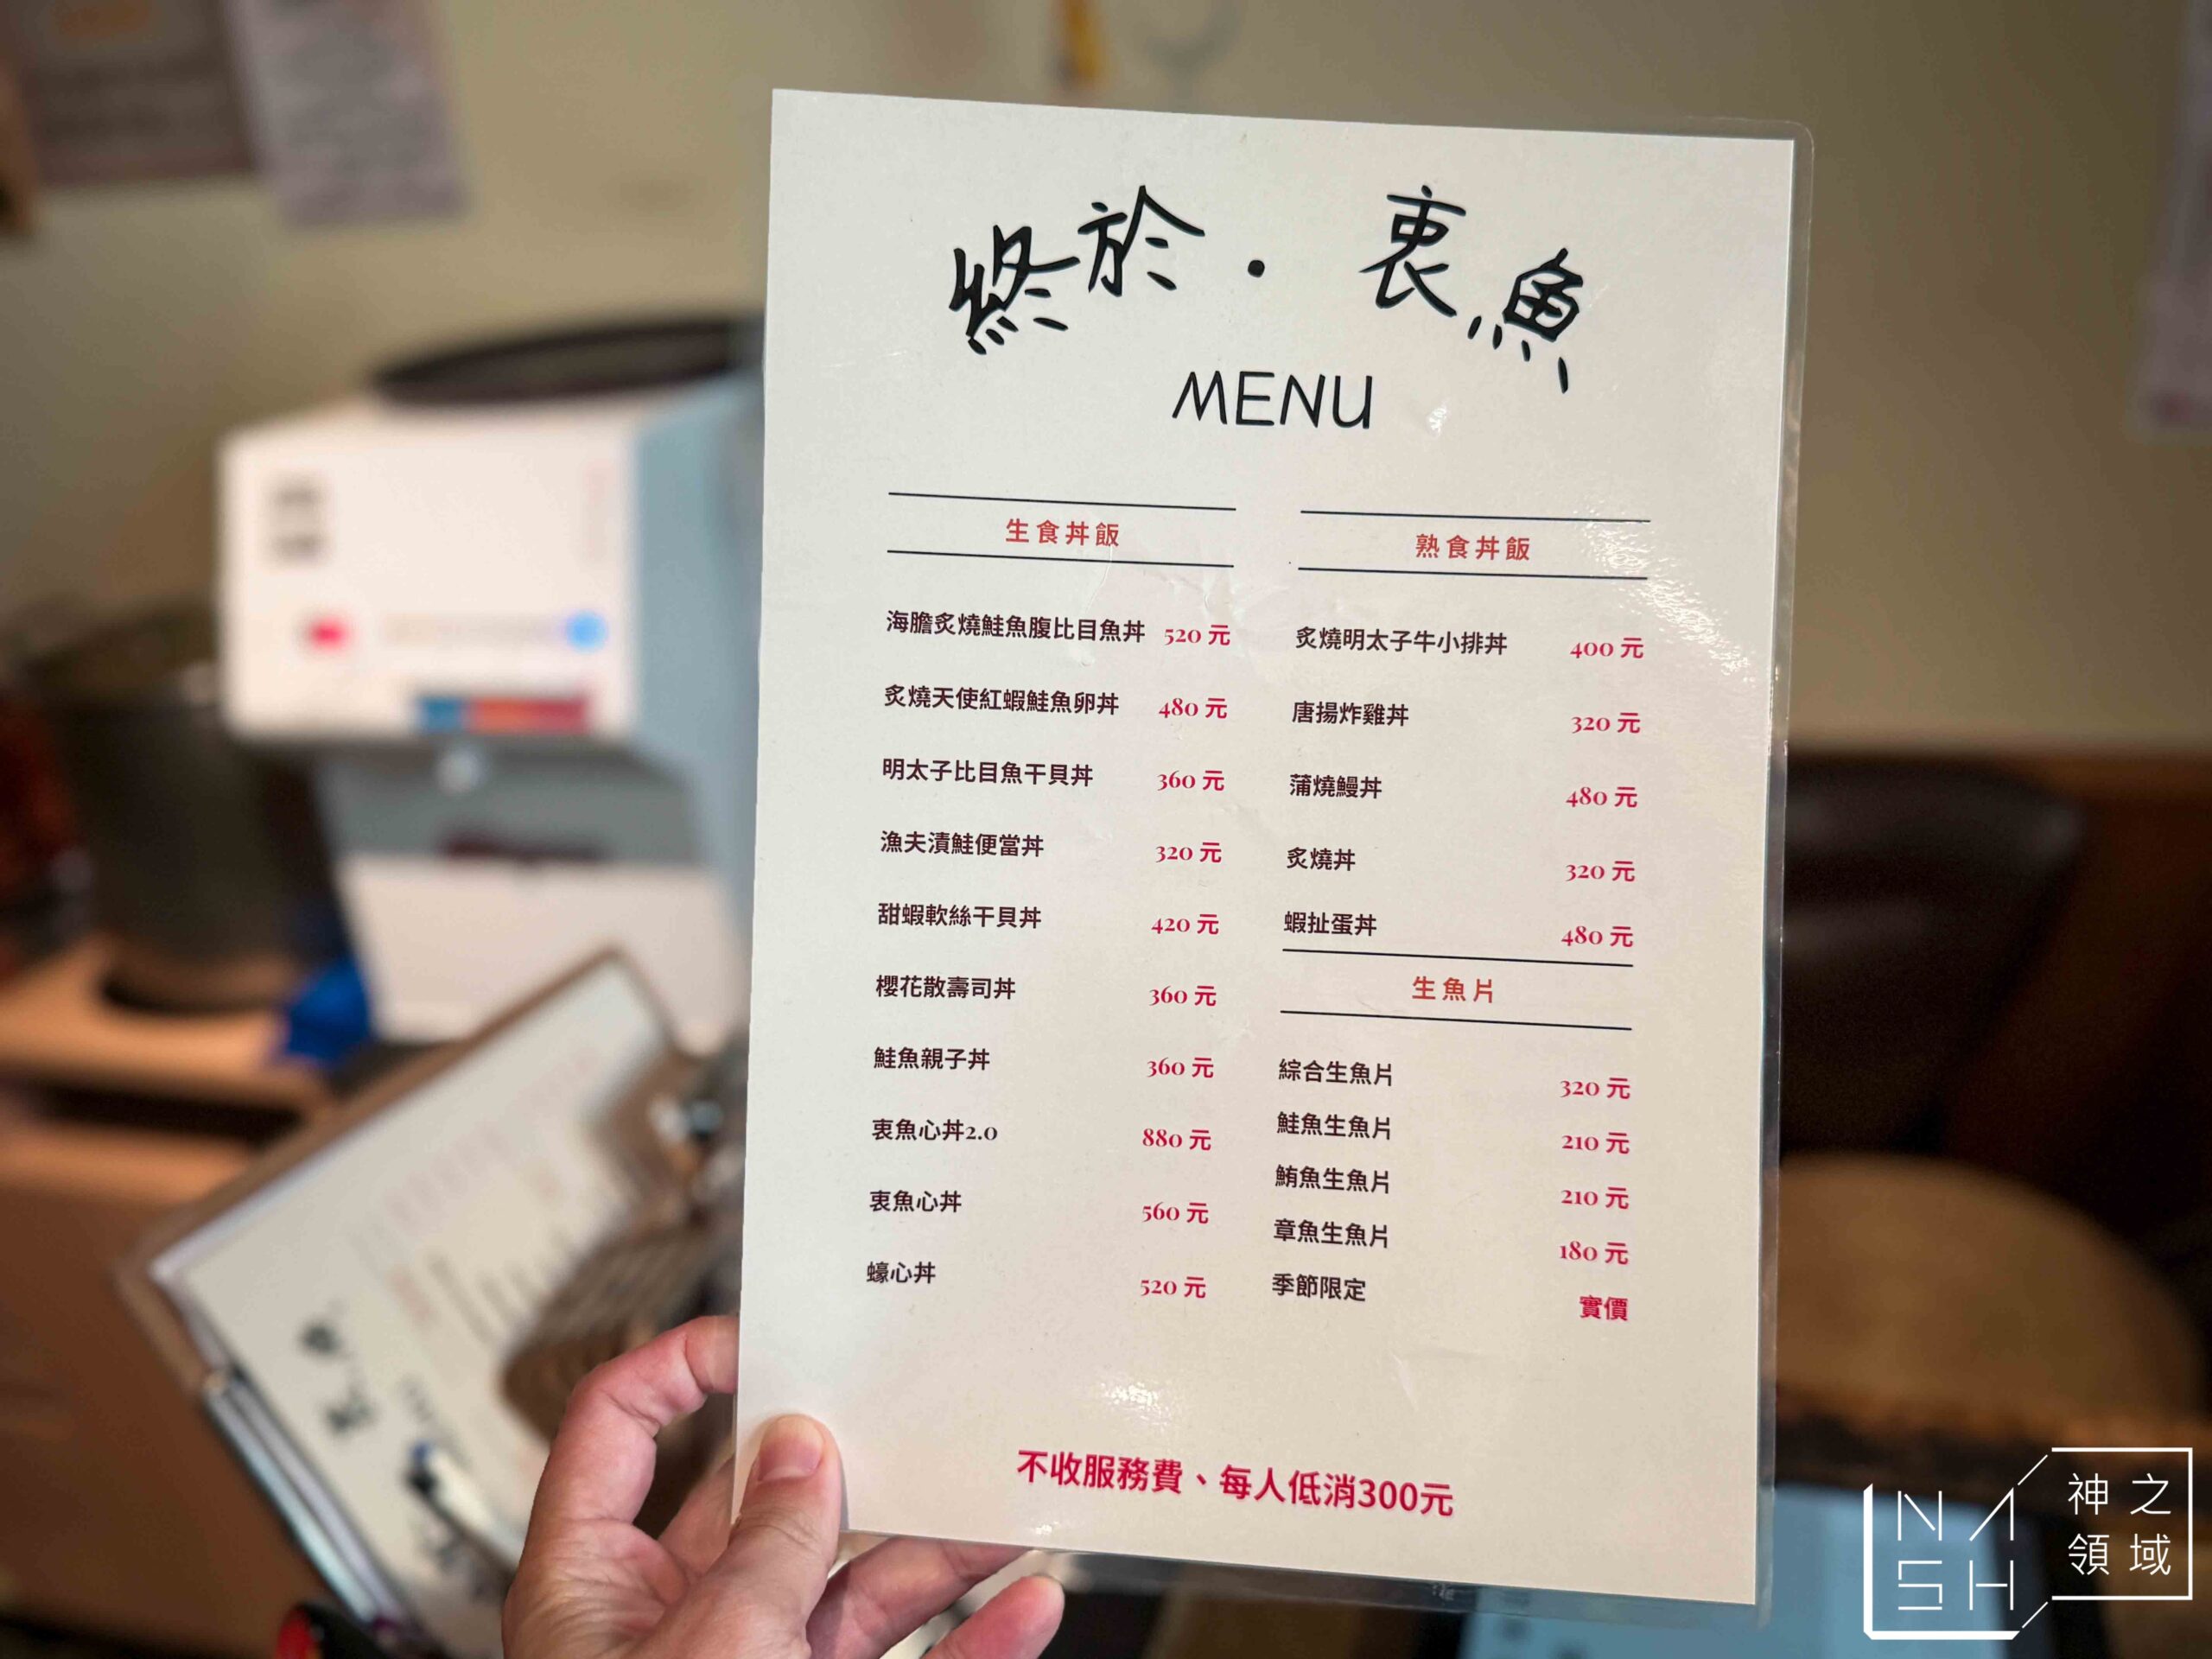 終於·衷魚
MENU
生食丼飯
海膽炙燒鮭魚腹比目魚丼 520 元
炙燒天使紅蝦鮭魚卵丼 480 元
明太子比目魚干貝丼 360 元
漁夫漬鮭便當丼 320 元
甜蝦軟絲干貝丼 420 元
櫻花散壽司丼 360 元
鮭魚親子丼 360 元
衷魚心丼2.0 880 元
衷魚心丼 560 元
蠔心丼 520 元
熟食丼飯
炙燒明太子牛小排丼 400 元
唐揚炸雞丼 320 元
蒲燒鰻丼 480 元
炙燒丼 320 元
蝦扯蛋丼 480 元
生魚片
綜合生魚片 320 元
鮭魚生魚片 210 元
鮪魚生魚片 210 元
章魚生魚片 180 元
季節限定 實價
不收服務費、每人低消300元
NASH
神之
領域